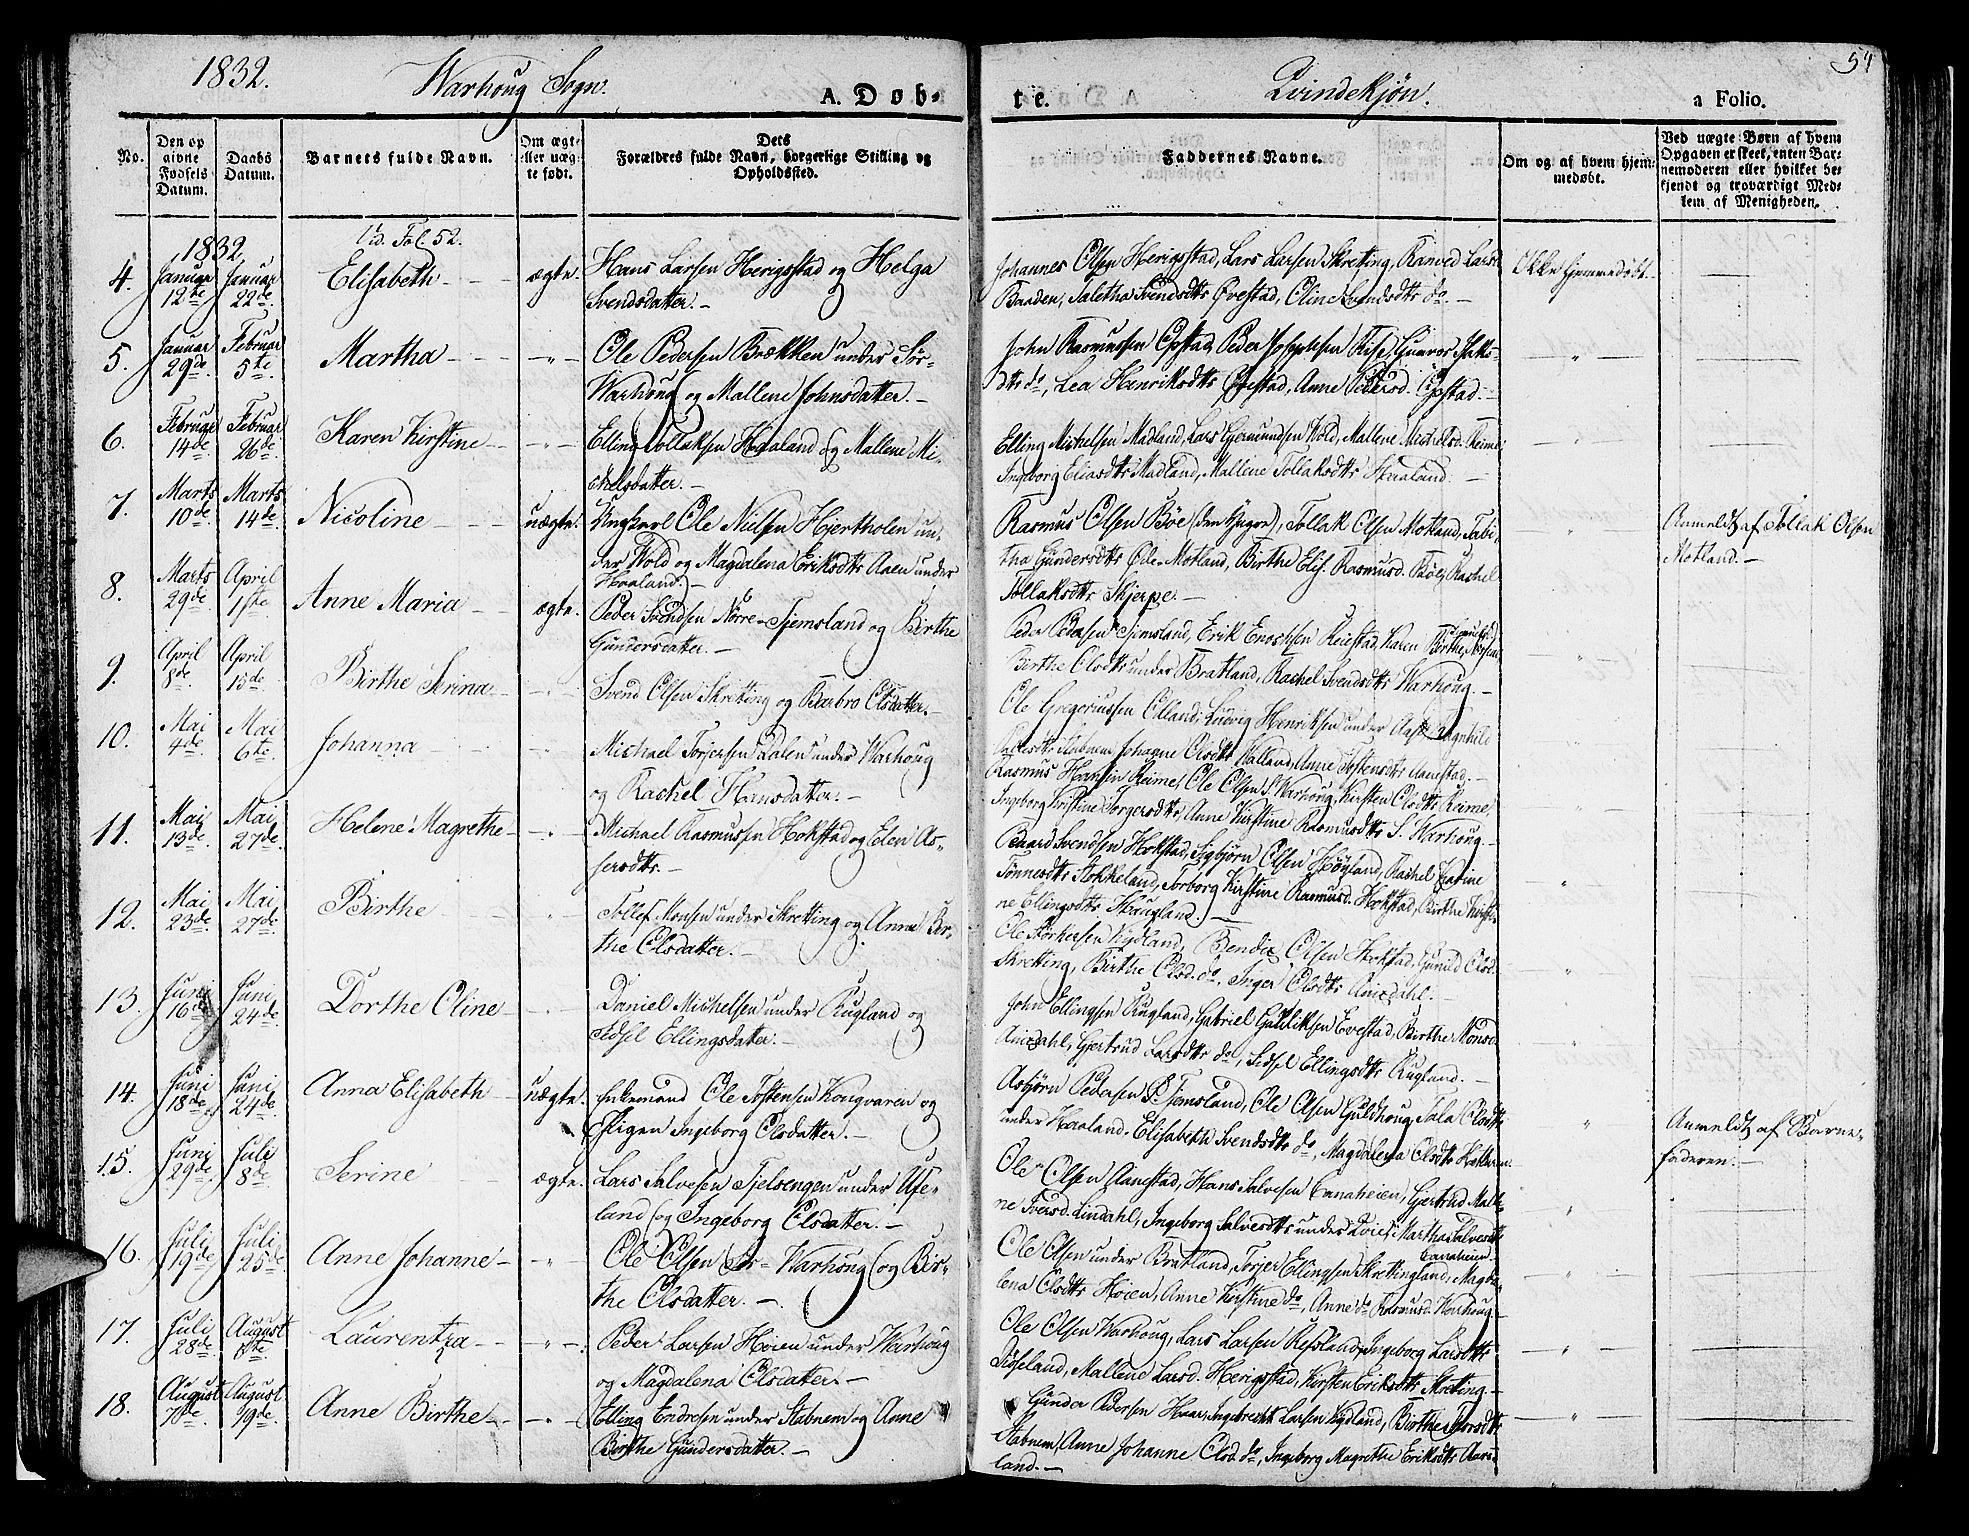 1832. Warhoug Sogn. A. Døb-
te. Qvindekjøn. a Folio. 54
No.
Den op
givne
Fødsels
Datum.
Daabs
Datum.
Barnets fulde Navn.
Om ægte
eller uæg-
te født.
Dets
Forældres fulde Navn, borgerlige Stilling og
Opholdssted.
Faddernes Navne.
Om og af hvem hjem-
medøbt.
Ved uægte Børn af hvem
Opgaven er skeet, enten Bar-
nemoderen eller hvilket be-
kjendt og troværdigt Med-
lem af Menigheden.
1832 Vid. Fol. 52.
4. Januar 12te Januar 22de Elisabeth ægte. Hans Larsen Herigstad og Helga
Svendsdatter.
Johannes Olsen Herigstad, Lars Larsen Skretting, Ranved Larsd.
Baaden, Saletha Svendsdtts Øvestad, Oline Svendsdtts do.
Ikke hjemmedøbt.
5. Januar 29de Februar 5te Martha " Ole Pedersen Brækken under Sør-
Warhoug og Mallene Johnsdatter.
John Rasmussen Opstad, Peder Josephsen Risø, Gunvor Isaks-
dtts do, Lea Henriksdtts Øvestad, Anne Pedersd. Opstad.
6. Februar 14de Februar 26de Karen Kirstine " Elling Tollaksen Haaland og Mallene Mi-
chelsdatter.
Elling Michelsen Madland, Lars Gjermundsen Wold, Mallene Michelsd. Reime,
Ingeborg Eliasdtts Madland, Mallene Tollaksdtts Haaland.
7. Marts 10de Marts 14de Nicoline uægte. Ungkarl Ole Nielsen Hjertholen un-
der Wold og Magdalena Eriksdtts Aaen under
Haaland.
Rasmus Olsen Bøe (den Yngre), Tollak Olsen Motland, Tabi-
tha Gundersdtts Øde-Motland, Birthe Elis. Rasmusd. Bøe, Rachel
Tollaksdtts Skjerpe.
Anmeldt af Tollak Olsen
Motland.
8. Marts 29de April 1ste Anne Maria ægte. Peder Svendsen Nørre-Tjemsland og Birthe
Gundersdatter.
Peder Pedersen Tjemsland, Erik Enochsen Reiestad, Karen
Birthe Olsdtts under Bratland, Rachel Svendsdtts Warhoug.
9. April 8de April 15de Birthe Serina " Svend Olsen Skretting og Barbro Olsdatter.
Ole Gregeriussen Olland, Ludvig Henriksen under Aase, Ragnhild
Stabnem, Johanne Olsdtts Walland, Anne Tostensdtts Aanestad.
10. Mai 4de Mai 6te Johanna " Michael Torjersen Dalen under Warhoug
og Rachel Hansdatter.
Rasmus Hansen Reime, Ole Olsen S. Warhoug, Kirsten Olsdtts Reime,
Ingeborg Kirstine Torgersdtts, Anne Kirstine Rasmusdtts S. Warhoug.
11. Mai 13de Mai 27de Helene Magrethe " Michael Rasmussen Hokstad og Elen As-
sersdtts.
Baard Svendsen Hokstad, Sigbjörn Olsen Høyland, Rachel Karine
Tønnesdtts Stokkeland, Torborg Kirstine Rasmusd. Hokstad, Birthe Kirsti-
ne Ellingsdtts Haugland.
12. Mai 23de Mai 27de Birthe " Tollef Monsen under Skretting og Anne Bir-
the Olsdatter.
Ole Storkersen Kydland, Bendix Olsen Hokstad, Gunild Olsd.
Skretting, Birthe Olsd. do, Inger Olsdtts Anisdahl.
13. Juni 16de Juni 24de Dorthe Oline " Daniel Michelsen under Rugland og
Sidsel Ellingsdatter.
John Ellingsen Rugland, Gabriel Evestad, Birthe Monsd.
Anisdahl, Gjertrud Larsdtts do, Sidsel Ellingsdtts Rugland.
14. Juni 18de Juni 24de Anna Elisabeth uægte. Enkemand Ole Tostensen Kongvaren og
Pigen Ingeborg Olsdatter.
Asbjørn Pedersen S. Tjemsland, Ole Olsen Guldhoug, Tala Olsdtts
under Haaland, Elisabeth Svendsdtts do, Magdalena Olsdtts
Anmeldt af Barne-
faderen.
15. Juni 29de Juli 8de Serine ægte. Lars Salvesen Tjelsengen under Ue-
land og Ingeborg Olsdatter.
Ole Olsen Aanestad, Hans Salvesen Canaheien, Gjertrud Malle-
ne Iversd. Lindahl, Ingeborg Salvesdtts under Qvie, Martha Salvesdtts
Canaheien.
16. Juli 19de Juli 25de Anne Johanne " Ole Olsen Sør-Warhoug og Bir-
the Olsdatter.
Ole Olsen under Bratland, Torjer Ellingsen Skrettingland, Magda-
lena Olsdtts Høien, Anne Kirstine do, Anne do Rasmusd. Warhoug.
17. Juli 28de August Laurentza " Peder Larsen Høien under Warhoug
og Magdalena Olsdatter.
Ole Olsen Warhoug, Lars Larsen Refsland, Ingeborg Larsdtts
Mallene Larsd. Herigstad, Kirsten Eriksdtts Skretting.
18. August 7de August 19de Anne Birthe " Elling Endresen under Stabnem og Anne
Birthe Gundersdatter.
Gunder Pedersen Haar, Ingebrecht Larsen Kydland, Birthe Torsdtts
Stabnem, Anne Johanne Olsd. do, Ingeborg Magrethe Eriksdtts Aars-
land.